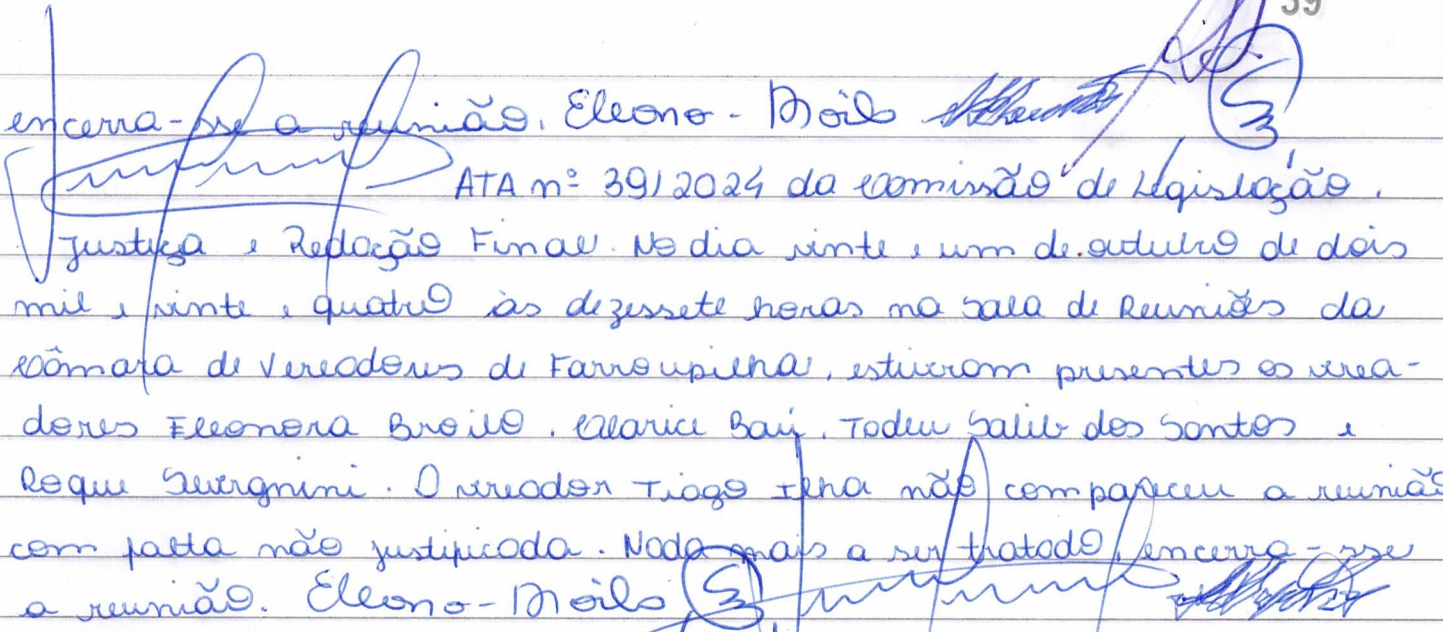 39
encerra-sse a reunião. Eleono - Broilo
ATA nº 39/2024 da Comissão de Legislação,
Justiça e Redação Final. No dia vinte e um de outubro de dois
mil e vinte e quatro às dezessete horas na Sala de Reuniões da
Câmara de Vereadores de Farroupilha, estiveram presentes os verea-
dores Eleonora Broilo, Clarice Baú, Tadeu Salib dos Santos e
Roque Severgnini. O vereador Tiago Ilha não compareceu a reunião
com falta não justificada. Nada mais a ser tratado, encerra-sse
a reunião. Eleono - Broilo